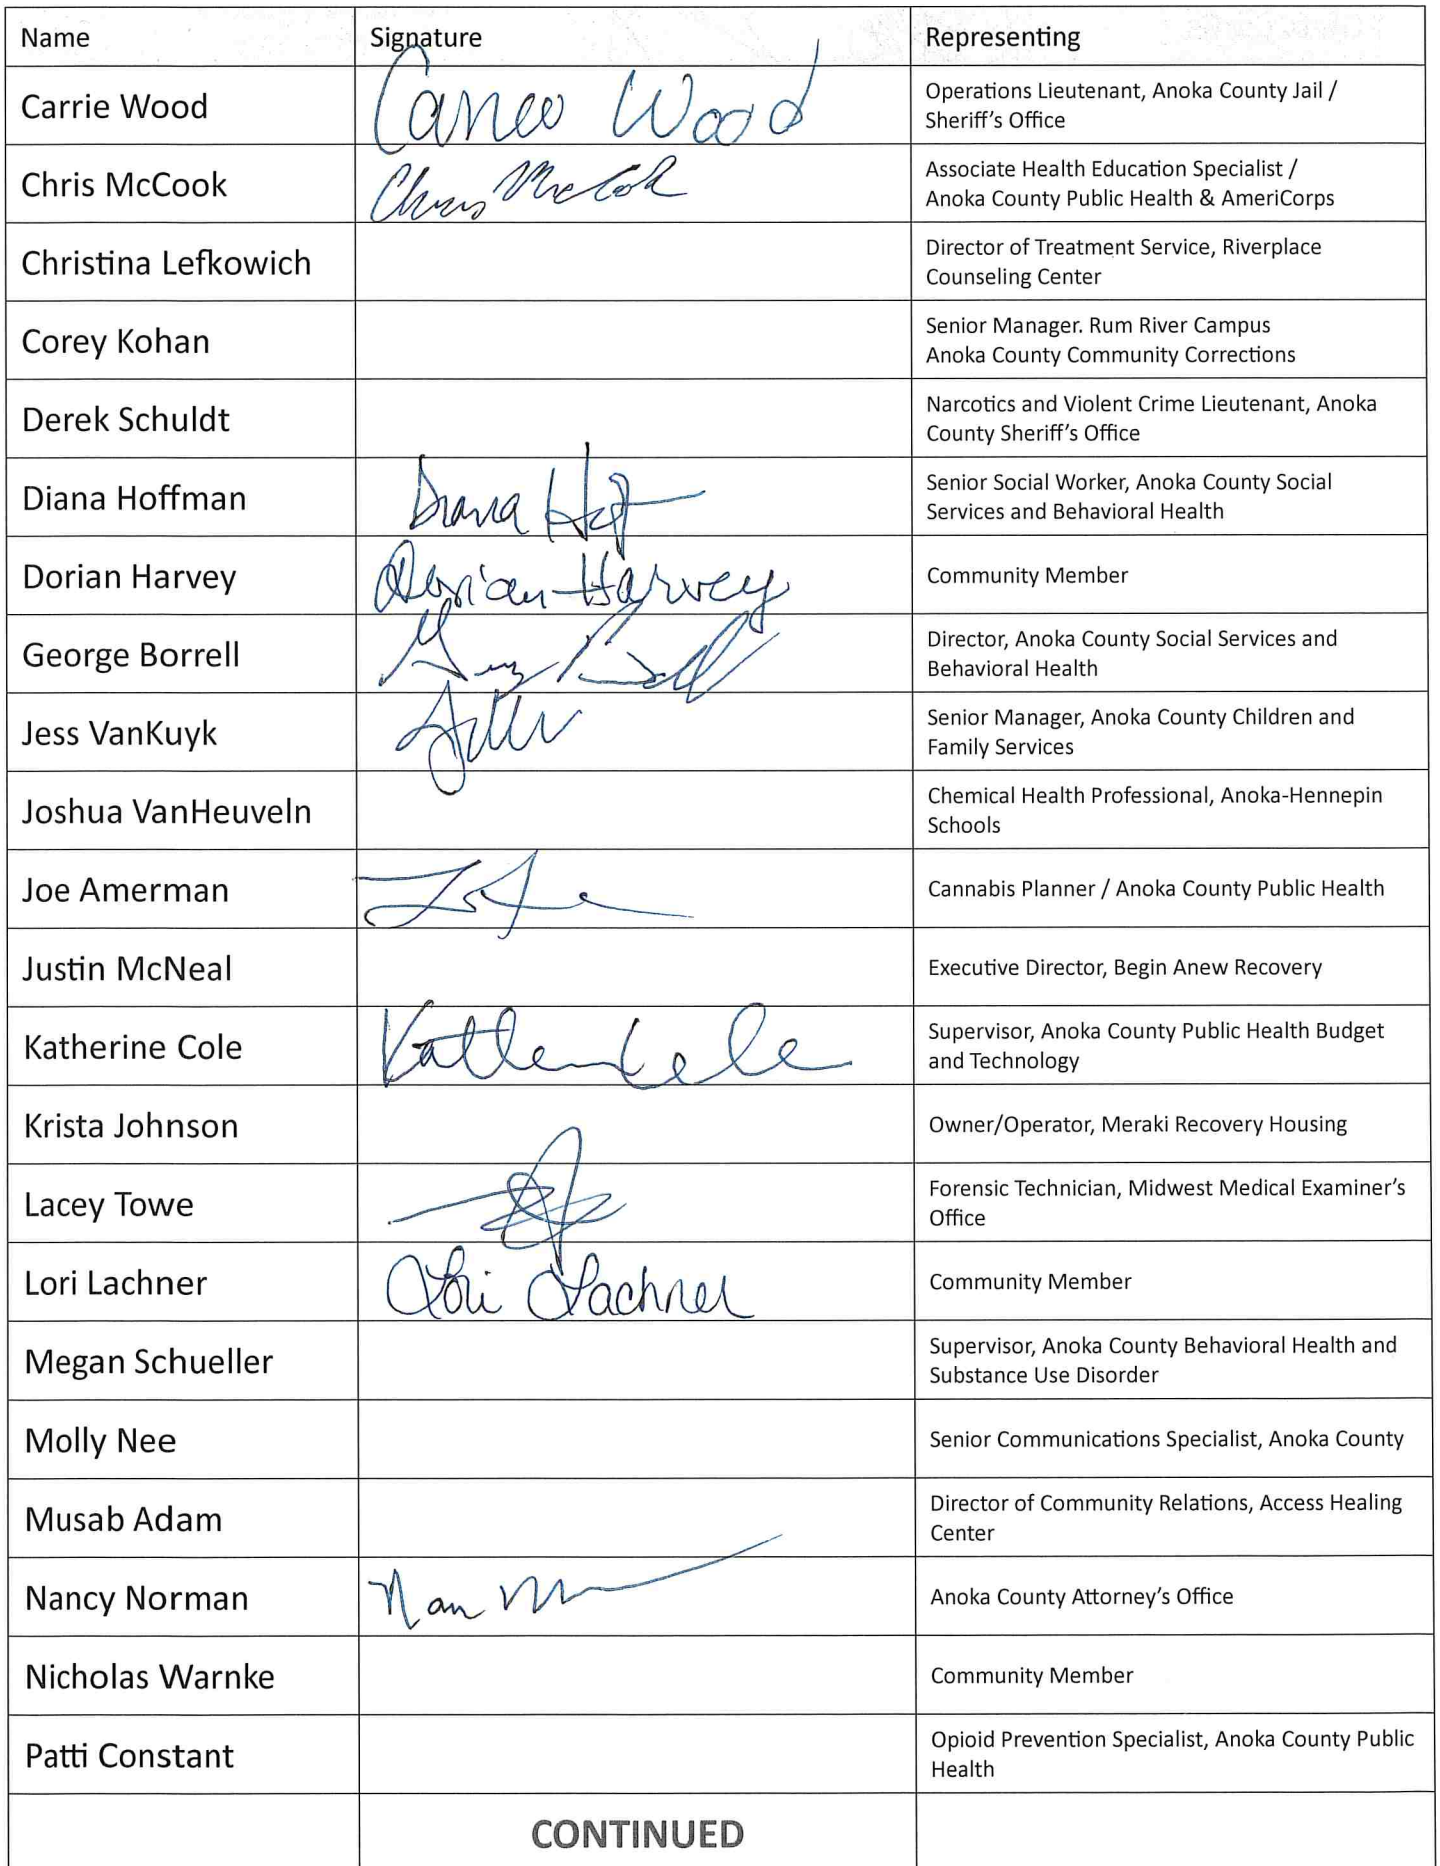 Name Signature Representing
Carrie Wood Carrie Wood Operations Lieutenant, Anoka County Jail /
Sheriff's Office
Chris McCook Chris McCook Associate Health Education Specialist /
Anoka County Public Health & AmeriCorps
Christina Lefkowich Director of Treatment Service, Riverplace
Counseling Center
Corey Kohan Senior Manager. Rum River Campus
Anoka County Community Corrections
Derek Schuldt Narcotics and Violent Crime Lieutenant, Anoka
County Sheriff's Office
Diana Hoffman Diana Senior Social Worker, Anoka County Social
Services and Behavioral Health
Dorian Harvey Dorian Harvey Community Member
George Borrell Director, Anoka County Social Services and
Behavioral Health
Jess VanKuyk Senior Manager, Anoka County Children and
Family Services
Joshua VanHeuveln Chemical Health Professional, Anoka-Hennepin
Schools
Joe Amerman Cannabis Planner / Anoka County Public Health
Justin McNeal Executive Director, Begin Anew Recovery
Katherine Cole Supervisor, Anoka County Public Health Budget
and Technology
Krista Johnson Owner/Operator, Meraki Recovery Housing
Lacey Towe Forensic Technician, Midwest Medical Examiner's
Office
Lori Lachner Lori Lachner Community Member
Megan Schueller Supervisor, Anoka County Behavioral Health and
Substance Use Disorder
Molly Nee Senior Communications Specialist, Anoka County
Musab Adam Director of Community Relations, Access Healing
Center
Nancy Norman Anoka County Attorney's Office
Nicholas Warnke Community Member
Patti Constant Opioid Prevention Specialist, Anoka County Public
Health
CONTINUED